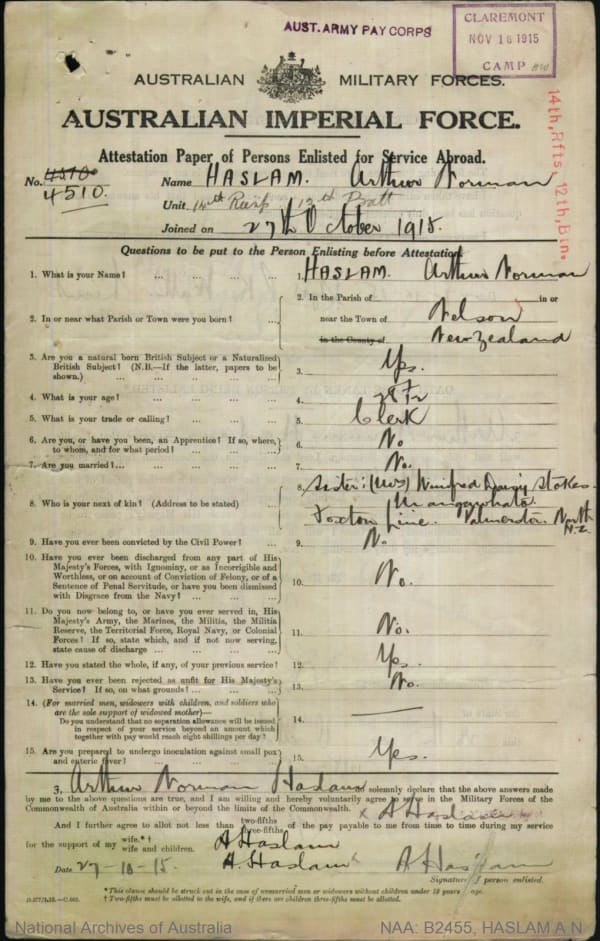 AUST. ARMY PAY CORPS
CLAREMONT
NOV 16 1915
CAMP
AUSTRALIAN MILITARY FORCES.
AUSTRALIAN IMPERIAL FORCE.
14th, Rfts, 12th, Bin.
Attestation Paper of Persons Enlisted for Service Abroad.
No. 4510. Name HASLAM. Arthur Norman
Unit 14th Reinf. 12th Batt
Joined on 27th October 1915.
Questions to be put to the Person Enlisting before Attestation.
1. What is your Name? ... ... ... ... 1. HASLAM. Arthur Norman
2. In or near what Parish or Town were you born? ... 2. In the Parish of in or
near the Town of Nelson
in the County of New Zealand
3. Are you a natural born British Subject or a Naturalized
British Subject? (N.B.—If the latter, papers to be
shown.) ... ... ... ... 3. Yes.
4. What is your age? ... ... ... ... 4.
5. What is your trade or calling? ... ... ... 5. Clerk
6. Are you, or have you been, an Apprentice? If so, where,
to whom, and for what period? ... ... ... 6. No
7. Are you married?... ... ... ... 7. No.
8. Who is your next of kin? (Address to be stated) ... 8. Sister: (Mrs) Winifred Daisy Stokes.
Foxton Line. Palmerston North
N.Z.
9. Have you ever been convicted by the Civil Power? ... 9. No
10. Have you ever been discharged from any part of His
Majesty's Forces, with Ignominy, or as Incorrigible and
Worthless, or on account of Conviction of Felony, or of a
Sentence of Penal Servitude, or have you been dismissed
with Disgrace from the Navy? ... ... ... 10. No.
11. Do you now belong to, or have you ever served in, His
Majesty's Army, the Marines, the Militia, the Militia
Reserve, the Territorial Force, Royal Navy, or Colonial
Forces? If so, state which, and if not now serving,
state cause of discharge ... ... ... 11. No.
12. Have you stated the whole, if any, of your previous service? 12. Yes.
13. Have you ever been rejected as unfit for His Majesty's
Service? If so, on what grounds? ... ... ... 13. No.
14. (For married men, widowers with children, and soldiers who
are the sole support of widowed mother)—
Do you understand that no separation allowance will be issued
in respect of your service beyond an amount which
together with pay would reach eight shillings per day? 14. —
15. Are you prepared to undergo inoculation against small pox
and enteric fever? ... ... ... 15. Yes.
I, Arthur Norman Haslam solemnly declare that the above answers made
by me to the above questions are true, and I am willing and hereby voluntarily agree to serve in the Military Forces of the
Commonwealth of Australia within or beyond the limits of the Commonwealth. x A Haslam
And I further agree to allot not less than two-fifths three-fifths of the pay payable to me from time to time during my service
for the support of my wife.*† wife and children. A Haslam
Date 27-10-15. A. Haslam A Haslam
Signature of person enlisted.
* This clause should be struck out in the case of unmarried men or widowers without children under 18 years of age.
† Two-fifths must be allotted to the wife, and if there are children three-fifths must be allotted.
National Archives of Australia
NAA: B2455, HASLAM A N